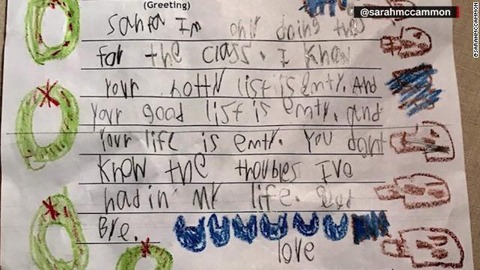 @sarahmccammon
@SARAHMCCAMMON
(Greeting)
Santa Im only doing this
for the class. I know
Your notty list is emty. And
your good list is emty. and
Your life is emty. You dont
know the thoubles Ive
had in my life. Good
Bye.
love